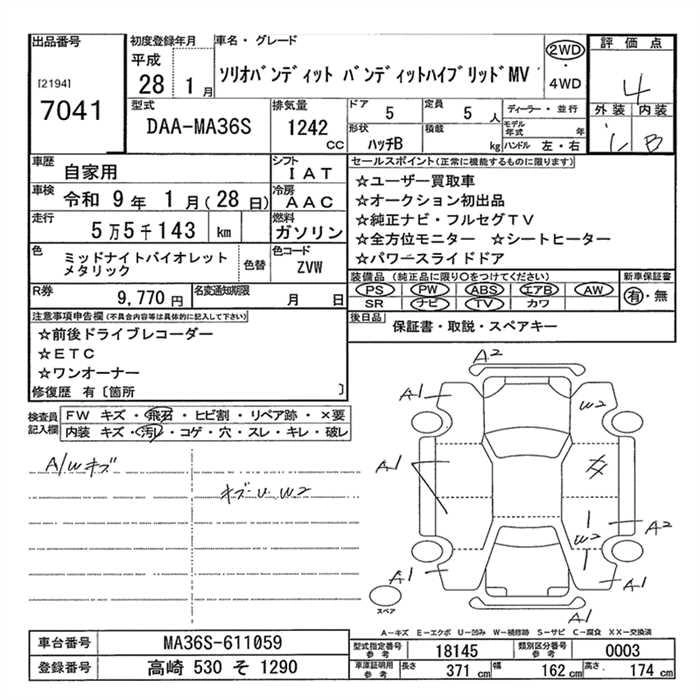 出品番号
[2194]
7041
初度登録年月
平成
28 1月
車名・グレード
ソリオバンディット バンディットハイブリッドMV
2WD
・
4WD
評価点
4
外装 内装
B
型式
DAA-MA36S
排気量
1242
CC
ドア
5
定員
5 人
形状
ハッチB
積載
kg
ディーラー・並行
モデル年式 年
ハンドル 左・右
車歴
自家用
シフト
IAT
車検
令和 9年 1月(28日)
冷房
AAC
走行
5万5千143 km
燃料
ガソリン
色
ミッドナイトバイオレット
メタリック
色替
色コード
ZVW
R券
9,770円
名変通知期限
月 日
セールスポイント(正常に機能するものに限ります)
☆ユーザー買取車
☆オークション初出品
☆純正ナビ・フルセグTV
☆全方位モニター ☆シートヒーター
☆パワースライドドア
装備品 (純正品に限り○をつけてください)
PS PW ABS エアB AW
SR ナビ TV カワ
新車保証書
有・無
後日品
保証書・取説・スペアキー
注意事項申告欄(不具合内容等は具体的に記入して下さい)
☆前後ドライブレコーダー
☆ETC
☆ワンオーナー
修復歴 有〔箇所 〕
検査員
記入欄
FW キズ・飛石・ヒビ割・リペア跡・×要
内装 キズ・汚レ・コゲ・穴・スレ・キレ・破レ
A/Wキズ
キズ・U W2
A2
A1
W2
A1
A2
W2
A1
A1
A1
スペア
A-キズ E-エクボ U-凹み W-補修跡 S-サビ C-腐食 XX-交換済
車台番号
MA36S-611059
登録番号
高崎 530 そ 1290
型式指定番号
参考
18145
類別区分番号
参考
0003
車庫証明用
参考
長さ
371 cm
幅
162 cm
高さ
174 cm